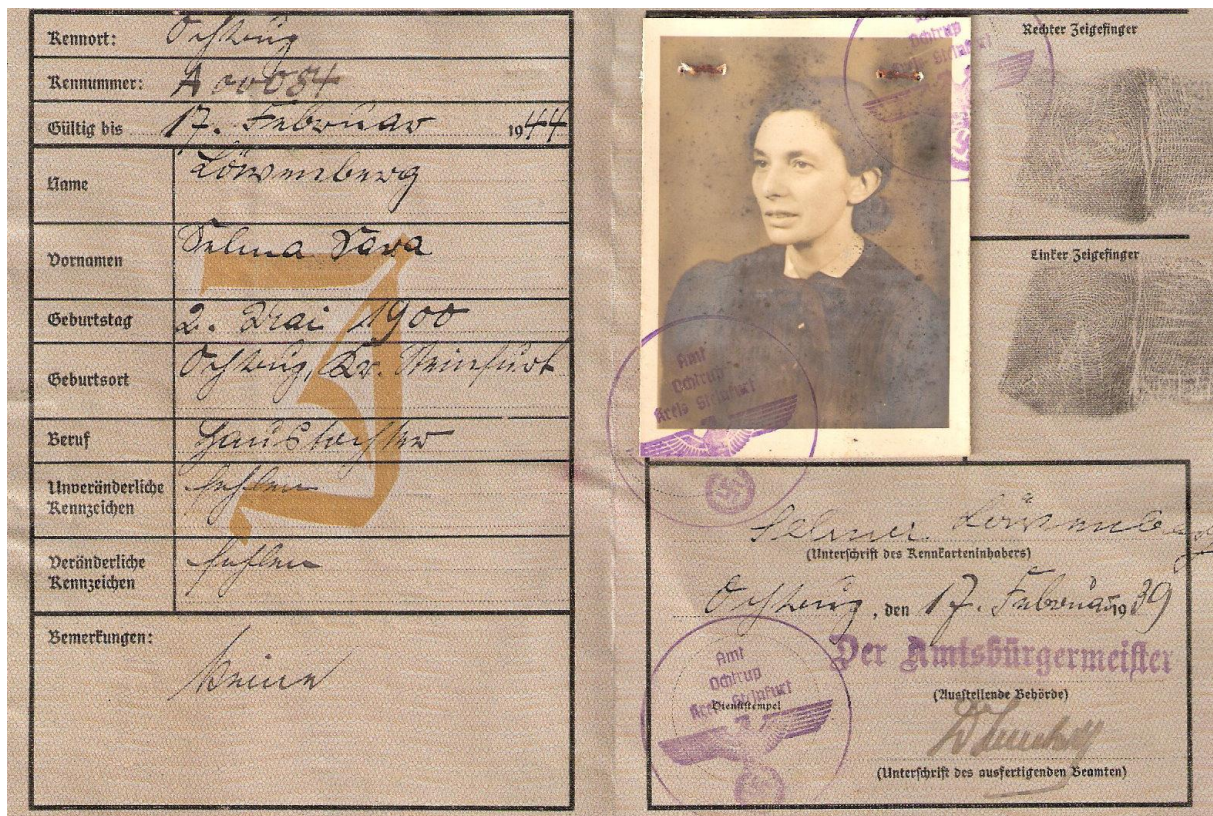 Kennort: Ochtrup
Kennummer: A 00084
Gültig bis 17. Februar 1944
Name Löwenberg
Vornamen Selma Sara
Geburtstag 2. Mai 1900
Geburtsort Ochtrup, Kr. Steinfurt
Beruf Haustochter
Unveränderliche Kennzeichen fehlen
Veränderliche Kennzeichen fehlen
Bemerkungen:
Keine
J
Amt
Ochtrup
Kreis Steinfurt
Rechter Zeigefinger
Linker Zeigefinger
Amt
Ochtrup
Kreis Steinfurt
Selma Löwenberg
(Unterschrift des Kennkarteninhabers)
Ochtrup, den 17. Februar 1939
Der Amtsbürgermeister
(Ausstellende Behörde)
Amt
Ochtrup
Kreis Steinfurt
Dienststempel
(Unterschrift des ausfertigenden Beamten)